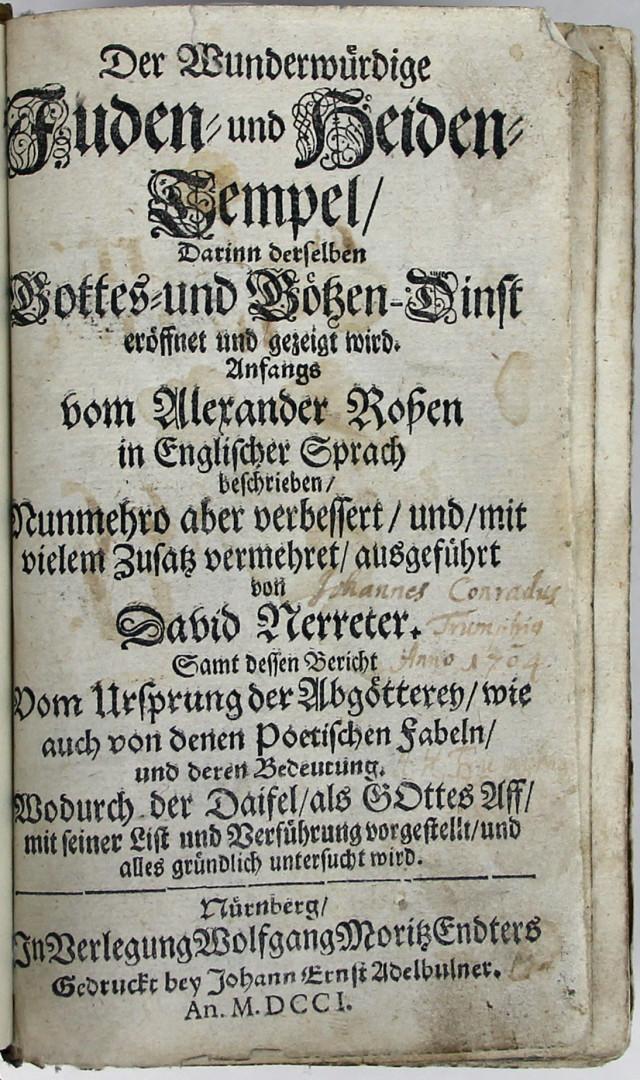 Der Wunderwürdige
Juden- und Heiden-
Tempel/
Darinn derselben
Gottes- und Götzen-Dinst
eröffnet und gezeigt wird.
Anfangs
vom Alexander Roßen
in Englischer Sprach
beschrieben/
Nunmehro aber verbessert/ und/mit
vielem Zusatz vermehret/ ausgeführt
von
Johannes Conradus
David Nerreter.
Samt dessen Bericht
Anno 1704
Vom Ursprung der Abgötterey/ wie
auch von denen Poetischen Fabeln/
und deren Bedeutung.
Wodurch der Daifel/als GOttes Aff/
mit seiner List und Verführung vorgestellt/und
alles gründlich untersucht wird.
Nürnberg/
In Verlegung Wolfgang Moritz Endters
Gedruckt bey Johann Ernst Adelbulner.
An. M. DCC I.